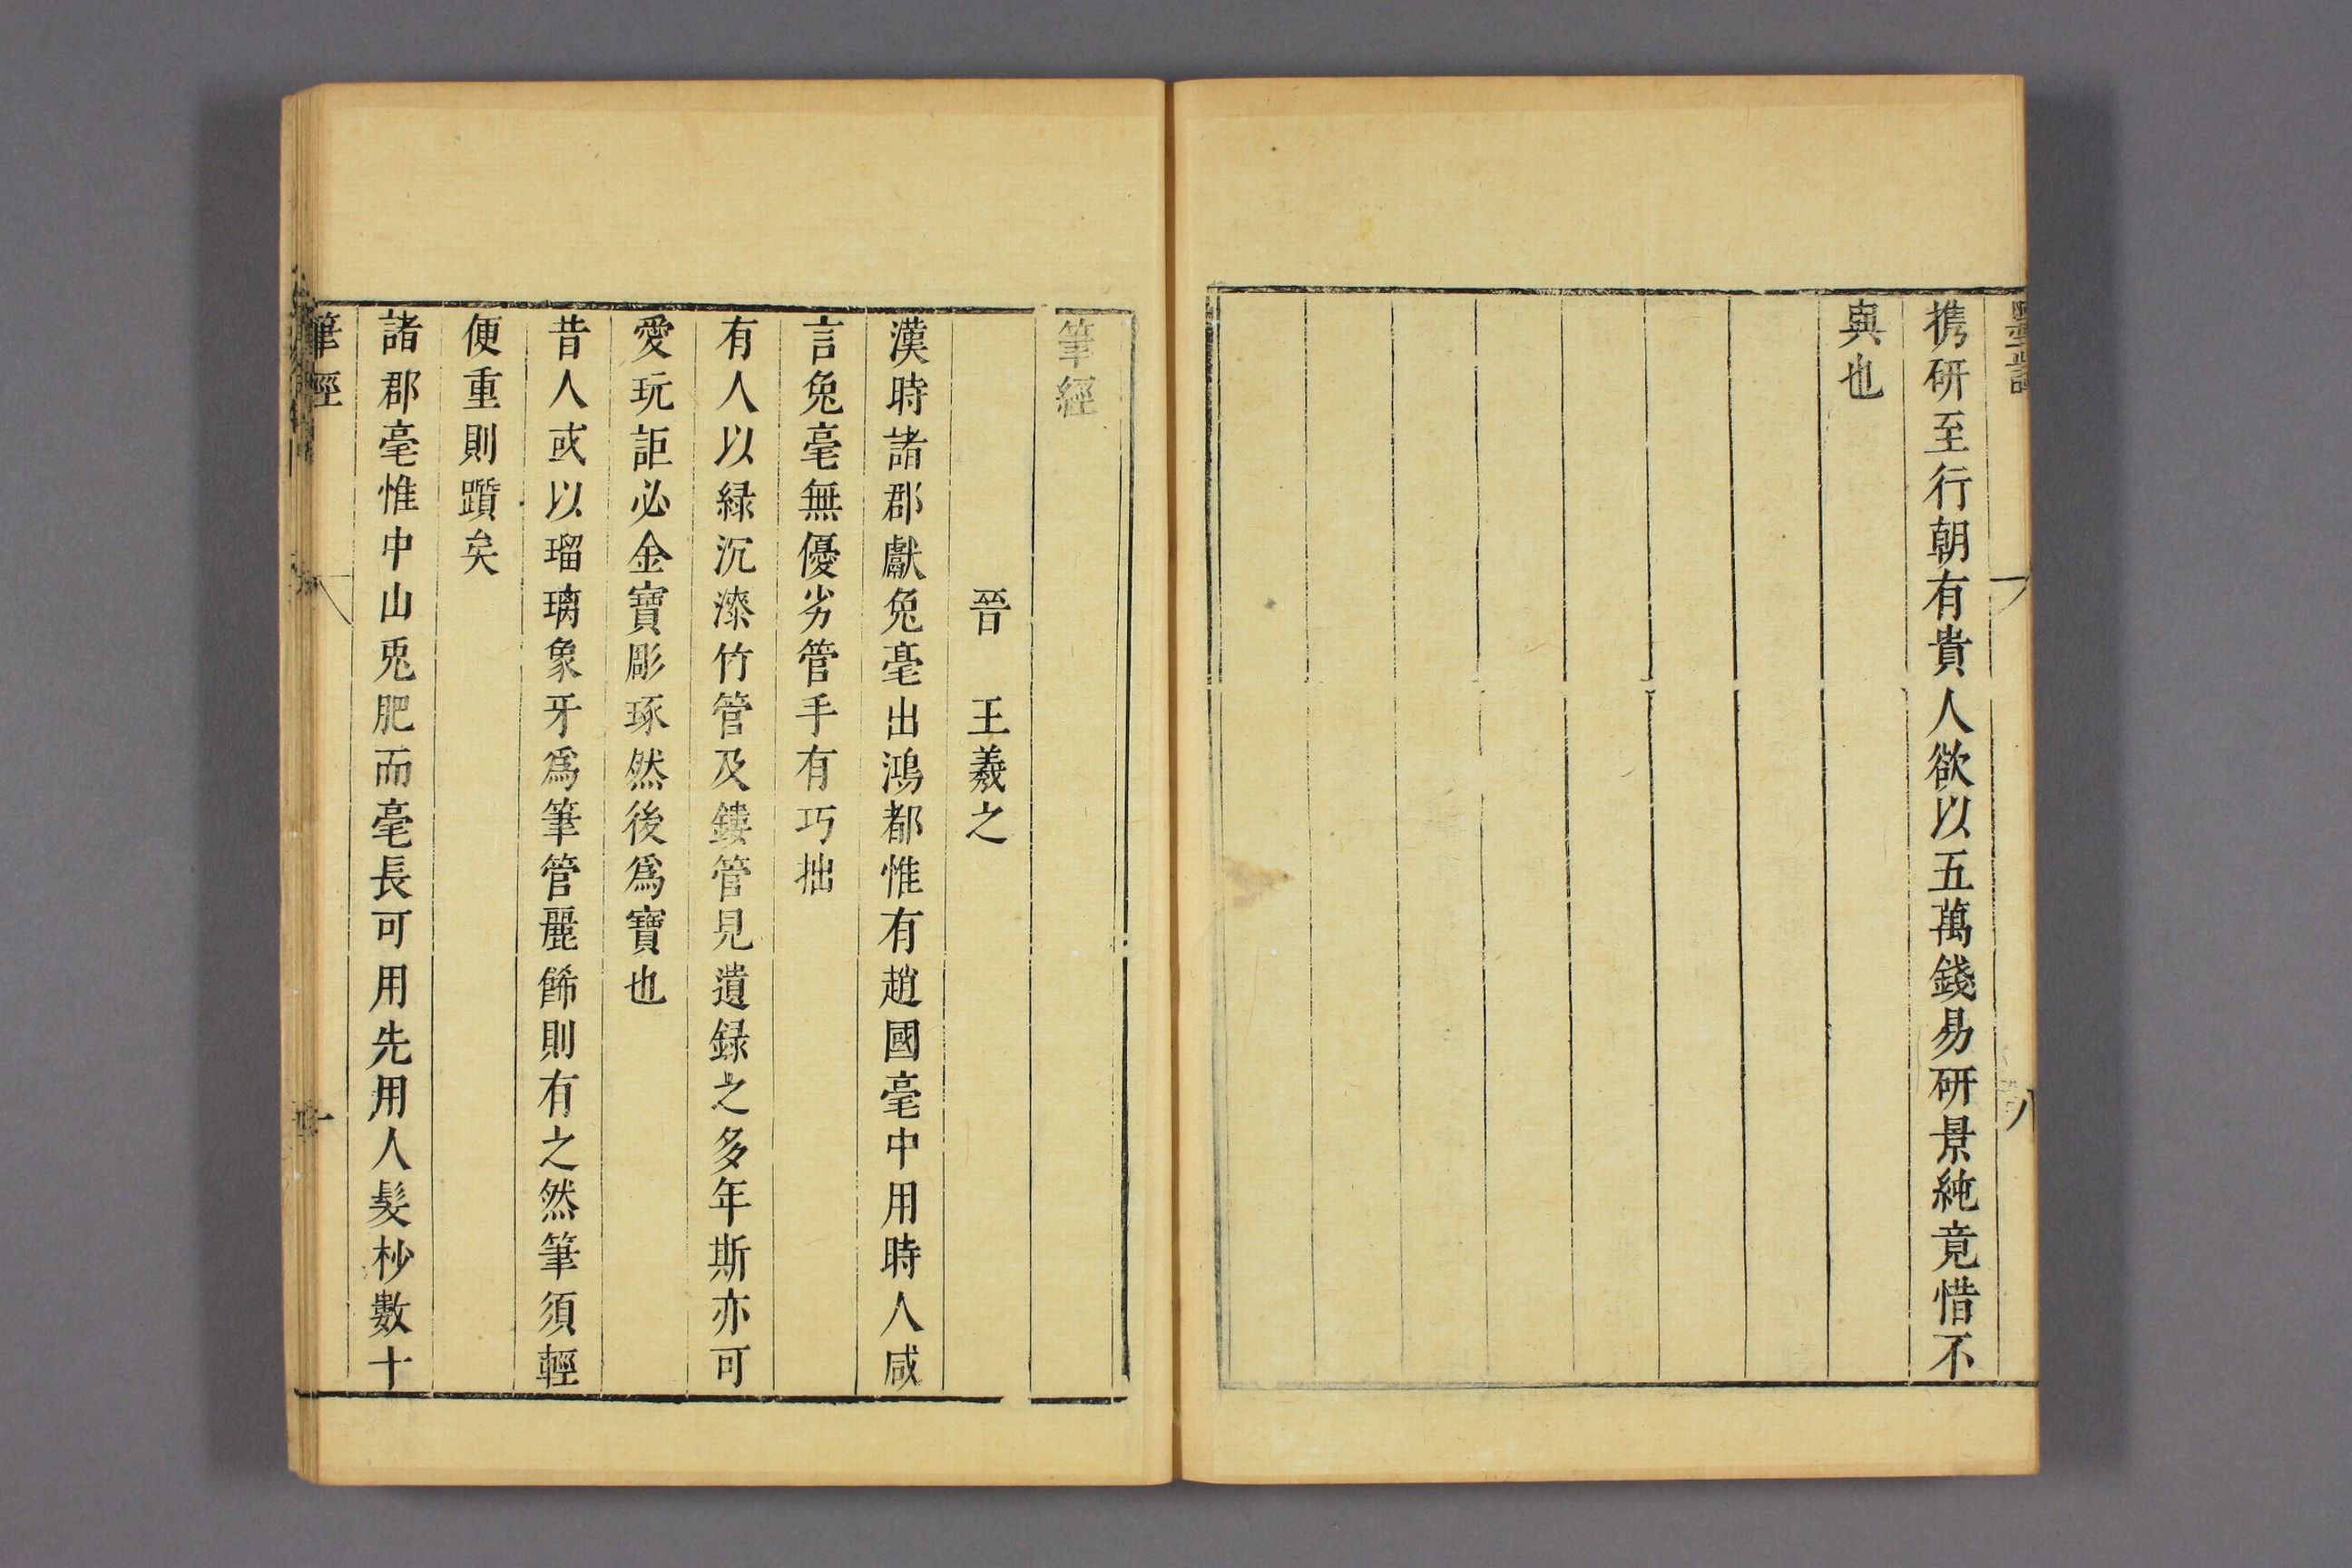 墨記
八
携研至行朝有貴人欲以五萬錢易研景純竟惜不
與也
筆經
晉　王羲之
漢時諸郡獻兔毫出鴻都惟有趙國毫中用時人咸
言兔毫無優劣管手有巧拙
有人以緑沉漆竹管及鏤管見遺録之多年斯亦可
愛玩詎必金寶彫琢然後爲寶也
昔人或以瑠璃象牙爲筆管麗餙則有之然筆須輕
便重則躓矣
諸郡毫惟中山兎肥而毫長可用先用人髮杪數十
筆經
一